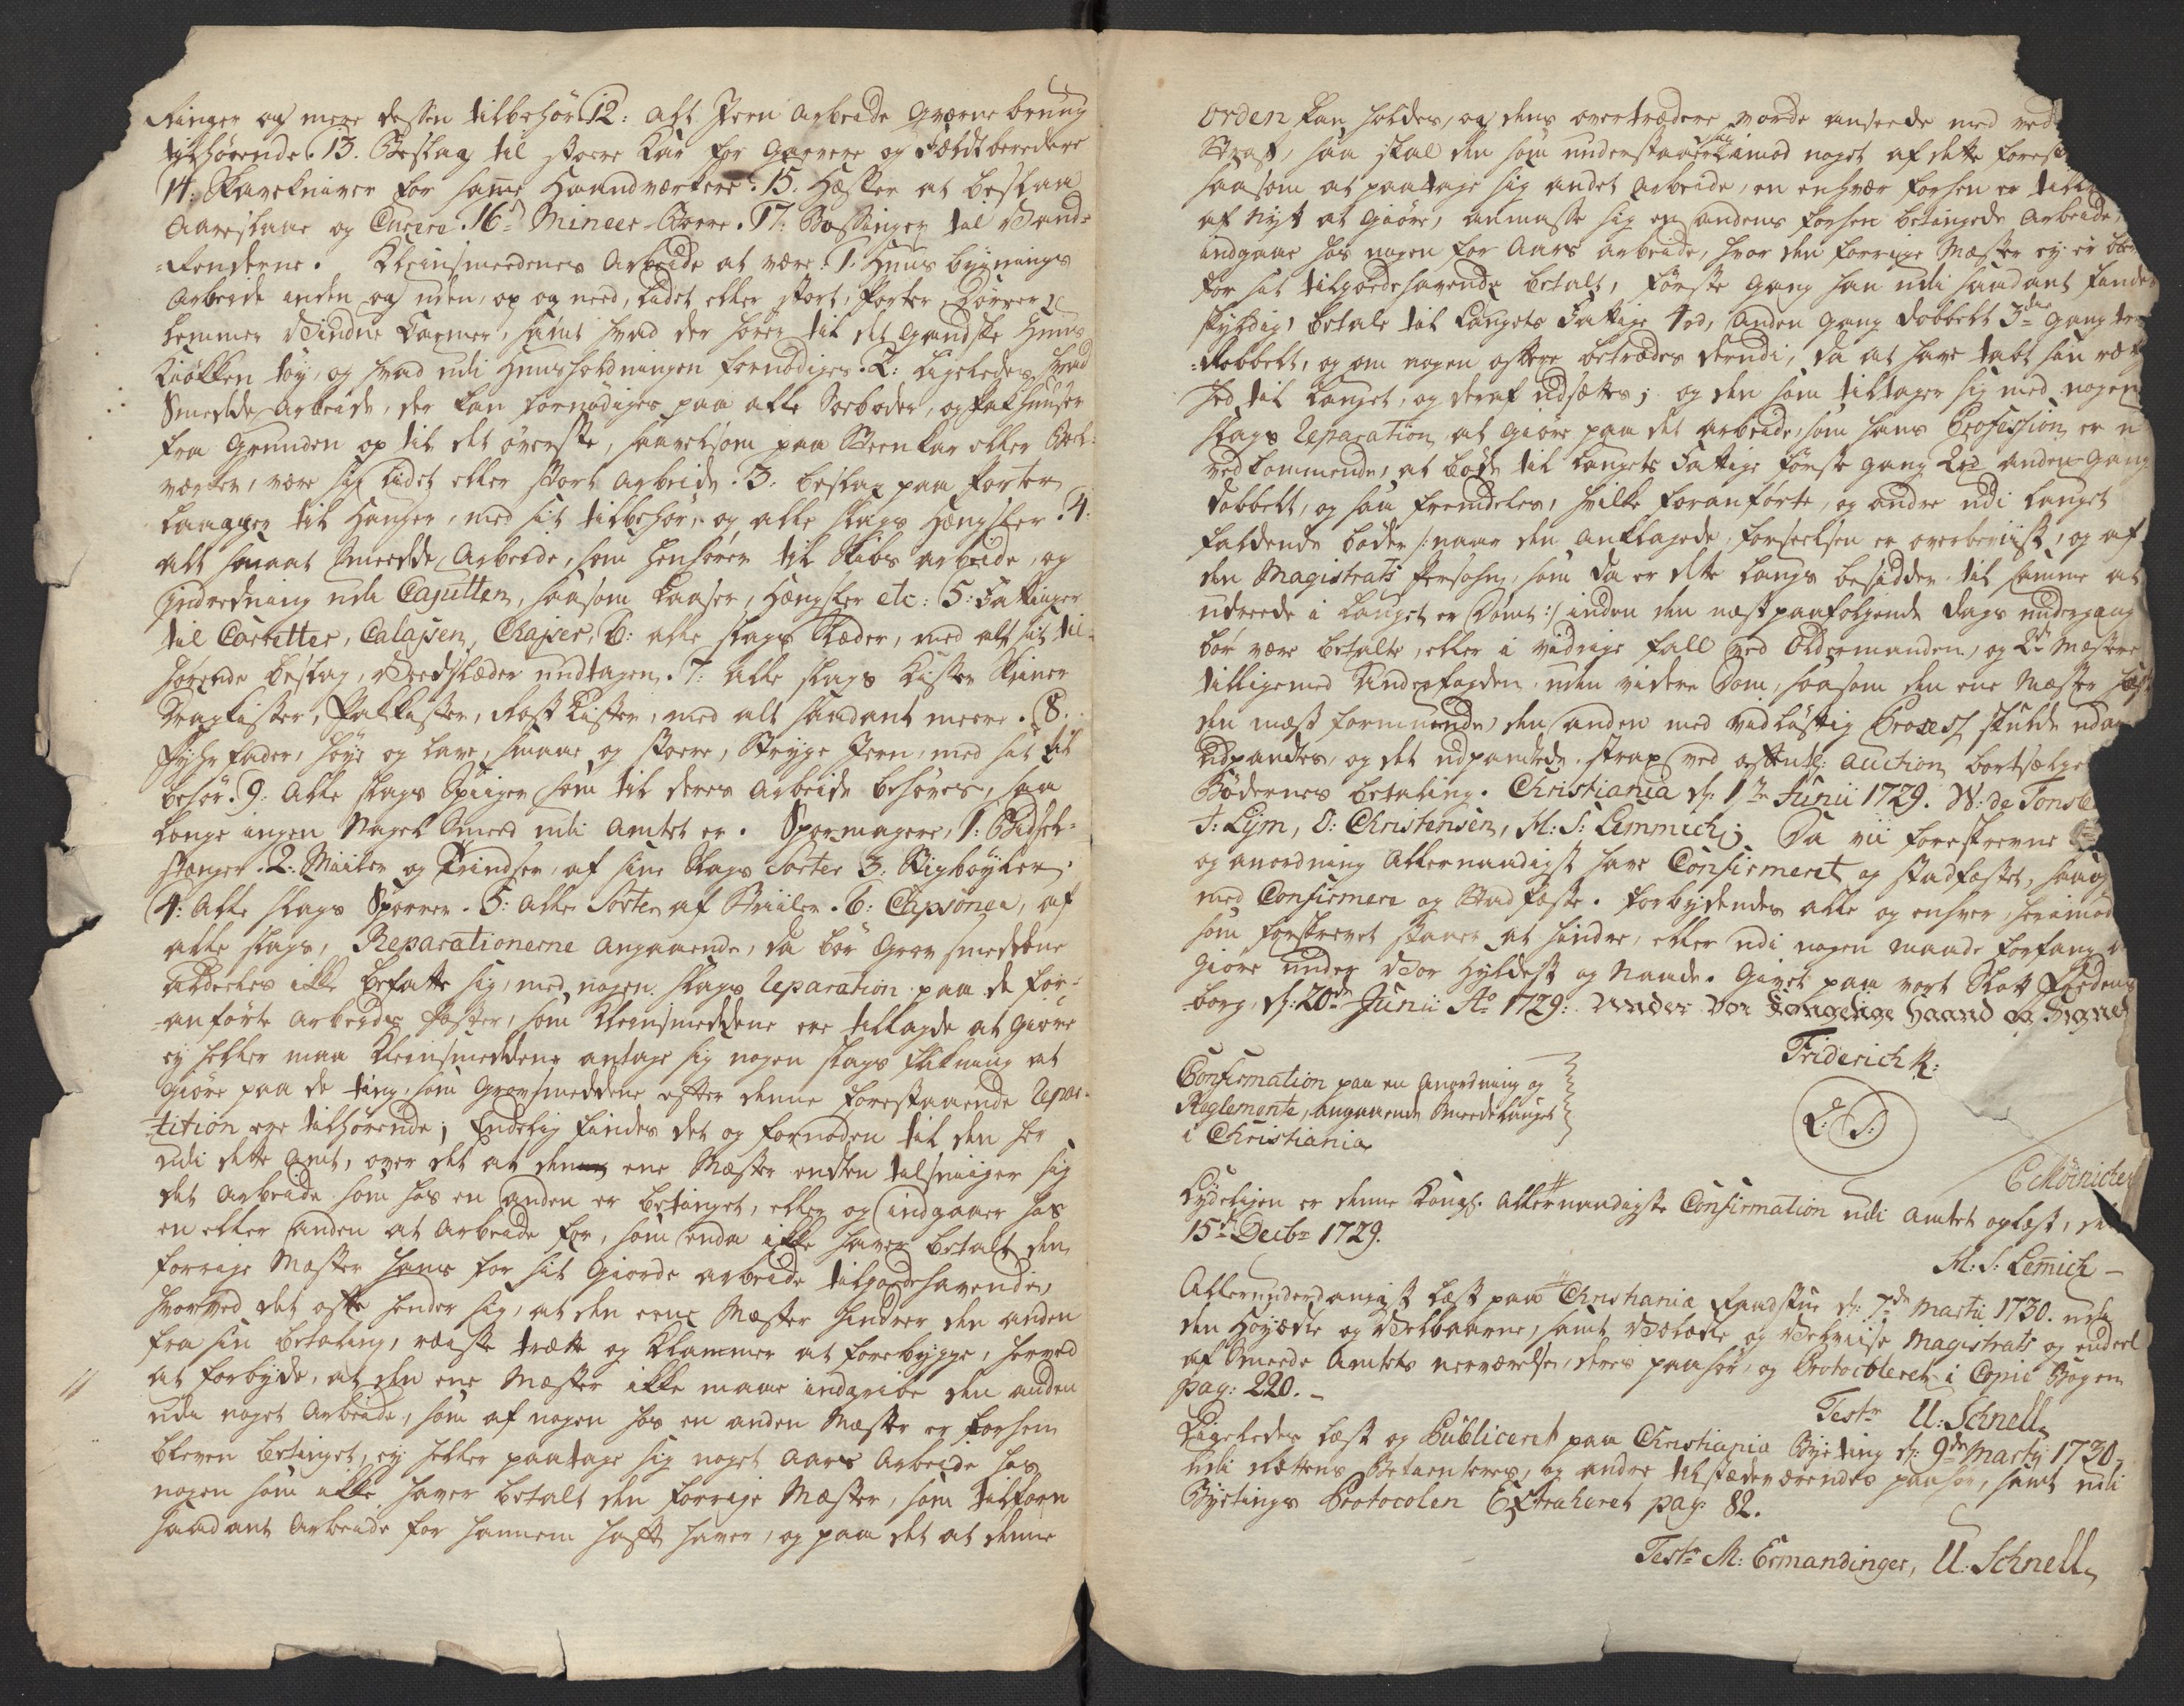 Ringer og mere dessen tilbehör 12: alt Jern Arbeide Qværne brug
tilhörende. 13. Beslag til store Kar for Garvere og Feldtberedere
14: Skavekniver for samme Haandværkere. 15. Hesker at beslaa
Aareslaae og 16: Mineer-Boere. 17: Bossinger til Vand-
-Renderne. Kleinsmedenes Arbeide at være: 1. Huus bygnings
Arbeide inden og uden, op og need, lidet eller stort, Porter Dörrer
Lemmer Vindue Karmer, samt hvad der hörer til det gandske Huus
Kiökken töy, og hvad udi Huusholdningen fornödiges. 2: Ligeledes hvad
Smedde Arbeide, der kan fornödiges paa alle Söeboder, og Pakhuuser
fra Grunden op til det överste, saavelsom paa Steenkar eller Bol-
værker, være sig lidet eller stort Arbeide. 3. beslag paa Porter
Laager til Hauger, med sit tilbehör, og alle slags Hengsler. 4.
alt smaat Smedde Arbeide, som henhörer til Skibs arbeide, og
Indredning udi Cajutten, saasom Laaser, Hængsler etc: 5: Fattinger
til Carretter, Calasjen, Chajser, 6: alle slags Slæder, med alt sit til-
hörende beslag, Vedslæder undtagen. 7: alle slags Kister Skriner
Dragkister, Pakkister, Rost Kister, med alt saadant meere. 8.
Fyhrfader, höye og lave, smaae og store, Stryge Jern, med sit til
behör. 9: Alle slags Spiiger som til deres Arbeide behöves, saa
længe ingen Nagel Smed udi Amtet er. Spormagere, 1: Bidsel-
stænger. 2: Miiler og Trindser, af sine Slags Sorter 3: Stigböyler.
4: Alle slags Sporrer. 5: alle Sorter af Striiler. 6: Capsoner, af
alle slags, Reparationerne angaaende, da bör Grov smeddene
aldeeles ikke befatte sig, med nogen slags Reparation paa de for-
-anförte Arbeids Poster, som Kleinsmeddene ere tillagde at giöre
ey heller maa Kleinsmeddene antage sig nogen slags flikning at
giöre paa de ting, som Grovsmeddene efter denne forestaaende Repar-
tition ere tilhörende; Endelig findes det og fornöden til den her
udi dette Amt, over det at den ene Mæster ensten tilsniiger sig
det Arbeide som hos en anden er betinget, eller og indgaaer hos
en eller anden at Arbeide for, som enda ikke haver betalt den
forrige Mæster hans for sit giorde arbeide tilgodehavende,
hvorved det ofte hender sig, at den eene Mæster hindrer den anden
fra sin betaling, reiste trætte og Klammer at forebygge, herved
at forbyde, at den ene Mæster ikke maae indgribe den anden
udi noget Arbeide, som af nogen hos en anden Mæster er forhen
bleven betinget, ey heller paatage sig noget Aars Arbeide hos
nogen som ikke haver betalt den forrige Mæster, som tilforn
saadant Arbeide for hannem haft haver, og paa det at denne
Orden kan holdes, og dens overtrædere vorde anseede med ved
Straf, saa skal den som understaaer sig imod noget af dette fores
saasom at paatage sig andet Arbeide, en enhver forhen er till
af nyt at giöre, anmasse sig en andens forhen betingede Arbeide,
indgaae hos nogen for Aars Arbeide, hvor den forrige Mæster ey er
for sit tilgodehavende betalt, förste gang han udi saadant finde
skyldig, betale til Laugets Fattige 4rd, Anden gang dobbelt 3de gang tre
-dobbelt, og om nogen oftere betrædes derudi, da at have tabt sin
hed til Lauget, og deraf udsættes; og den som tiltager sig med nogen
slags Reparation at giöre paa det arbeide, som hans Profession er u
vedkommende, at böde til Laugets Fattige förste gang 2rd anden gang
dobbelt, og saa fremdeles, hvilke foranförte, og andre udi Lauget
faldende böder /: naar den Anklagede, forseelsen er overbeviist, og af
den Magistrats Persohn, som da er dette Laugs besidder til samme at
udreede i Lauget er dömt :/ inden den næst paafölgende dags undergang
bör være betalte, eller i vidrige fald ved Oldermanden, og 2de Mæstere
tilligemed Underfogden, uden videre dom, saasom den ene Mæster
den mæst formuende, den anden med vidlöftig Process skulde
udpandtes, og det udpantede strax ved offentl: Auction bortsælge
Bödernes betaling. Christiania d: 1te Junii 1729. W: de Tonsb
J: Lÿm, O: Christensen, M: S: Lemmich; Da vii forestrevne
og anordning Allernaadigst have Confirmeret og stadfæstet, saa
med Confirmere og Stadfæste. Forbydendes alle og enhver, herimod
som forskrevet staaer at hindre, eller udi nogen maade forfang
giöre under Vor Hyldest og Naade. Givet paa vort Slott Fredens
-borg, d: 20de Junii Ao 1729: under Vor Kongelige Haand og Signet
Friderich R:
Confirmation paa en Anordning og
Reglemente, angaaende Smeede Lauget
i Christiania
L: S:
C Möinichen
Lydeligen er denne Kongl: Allernaadigste Confirmation udi Amtet oplæst, d
15de Decbr 1729.
M: S: Lemich
Allerunderdanigst læst paa Christiania Raadstue d: 7de Martii 1730. udi
den Höyædle og Velbaarne, samt Velædle og Velviise Magistrats og endeel
af Smeede Amtets nerværelse, deres paahör, og Protocolleret i Copie Bogen
pag: 220.
Testr U: Schnell
Ligeledes læst og Publiceret paa Christiania Bye ting d: 9de Martij 1730.
Udi Rettens Betienteres, og andre tilstædeværendes paahör, samt udi
Byetings Protocolen Extraheret pag: 82.
Testr M: Ermandinger, U: Schnell